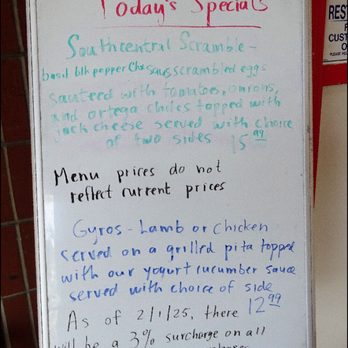 Today's Specials
Southcentral Scramble -
basil blk pepper
scrambled eggs
sauteed with tomatoes, onions,
and ortega chiles topped with
jack cheese served with choice
of two sides 15.99
Menu prices do not
reflect current prices
Gyros - Lamb or Chicken
served on a grilled pita topped
with our yogurt cucumber sauce
served with choice of side
12.99
As of 2/1/25, there
will be a 3% surcharge on all
RES
CUST